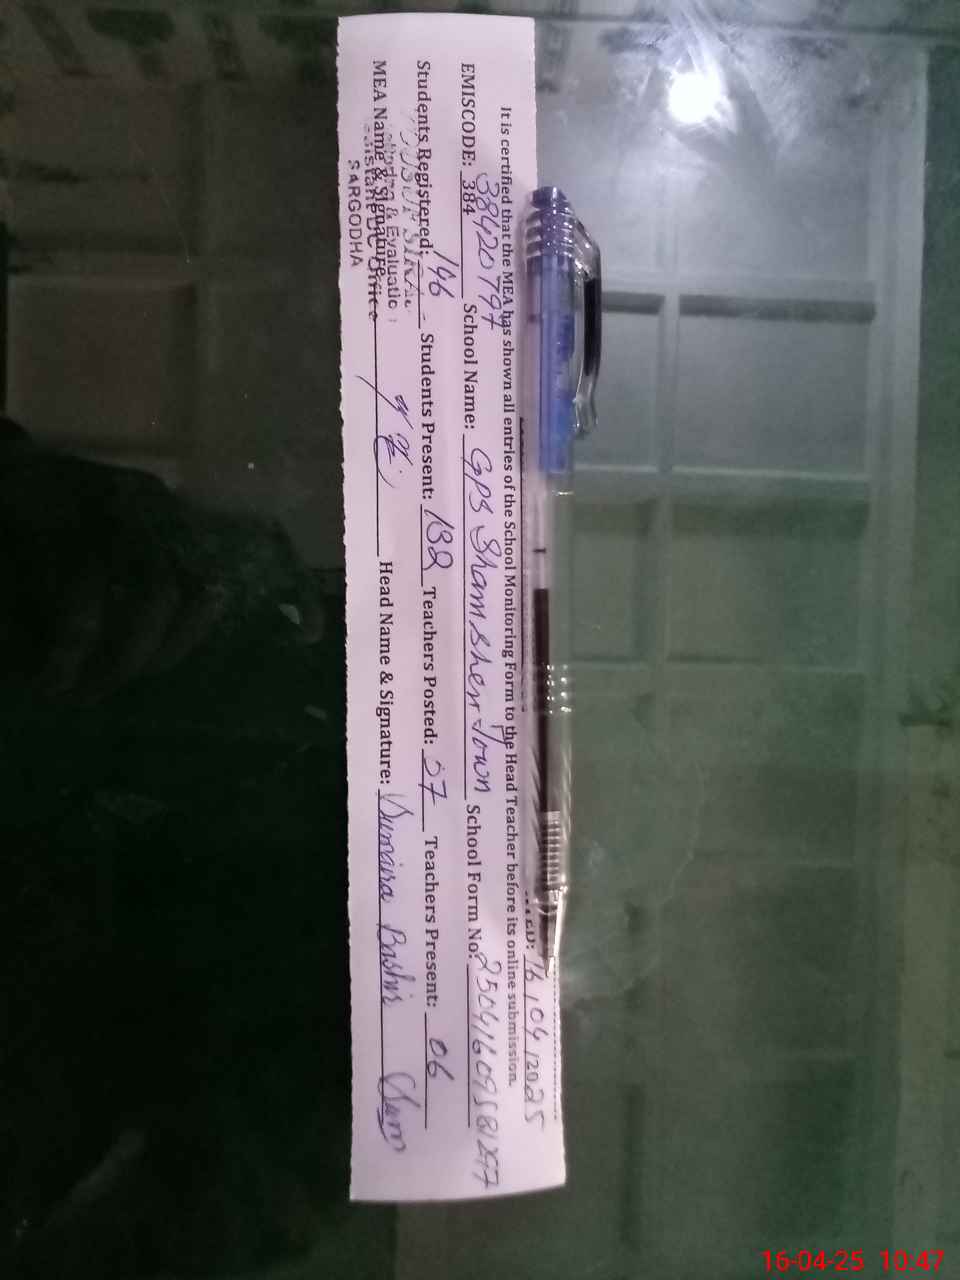 DATED: 16/04/2025
It is certified that the MEA has shown all entries of the School Monitoring Form to the Head Teacher before its online submission.
EMISCODE: 384 38420797 School Name: GPS Sham Sher Town School Form No:
Students Registered: 146 Students Present: 132 Teachers Posted: 07 Teachers Present: 06
MEA Name & Signature: Head Name & Signature: Sumaira Bashir Sum
SARGODHA
16-04-25 10:47